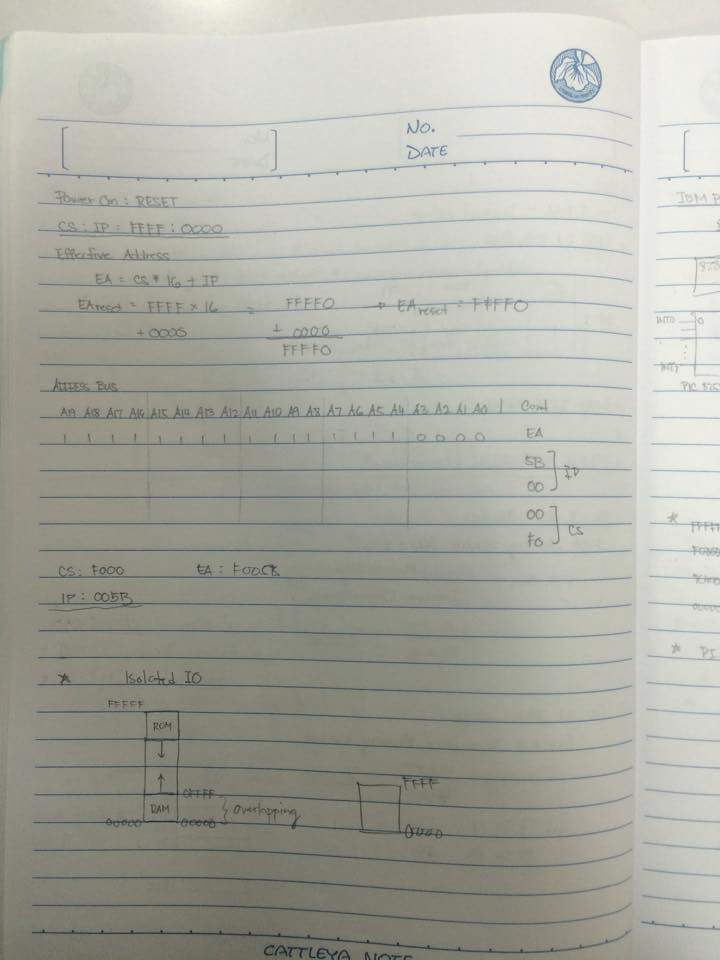 NO.
DATE
Power On : RESET
CS : IP = FFFF : 0000
Effective Address
EA = CS * 16 + IP
EAreset = FFFF x 16 = FFFF0 → EAreset = FFFF0
+ 0000 + 0000
FFFF0
Address Bus
A19 A18 A17 A16 A15 A14 A13 A12 A11 A10 A9 A8 A7 A6 A5 A4 A3 A2 A1 A0
1 1 1 1 1 1 1 1 1 1 1 1 1 1 1 1 0 0 0 0 EA
5B
00 IP
00
F0 CS
CS: F000 EA :
IP : 005B
* Isolated IO
FFFFF
ROM
FFFF
RAM
00000 00000 overlapping
0000
CATTLEYA NOTE
IBM
INT0 0
INT7
PIC
*
*